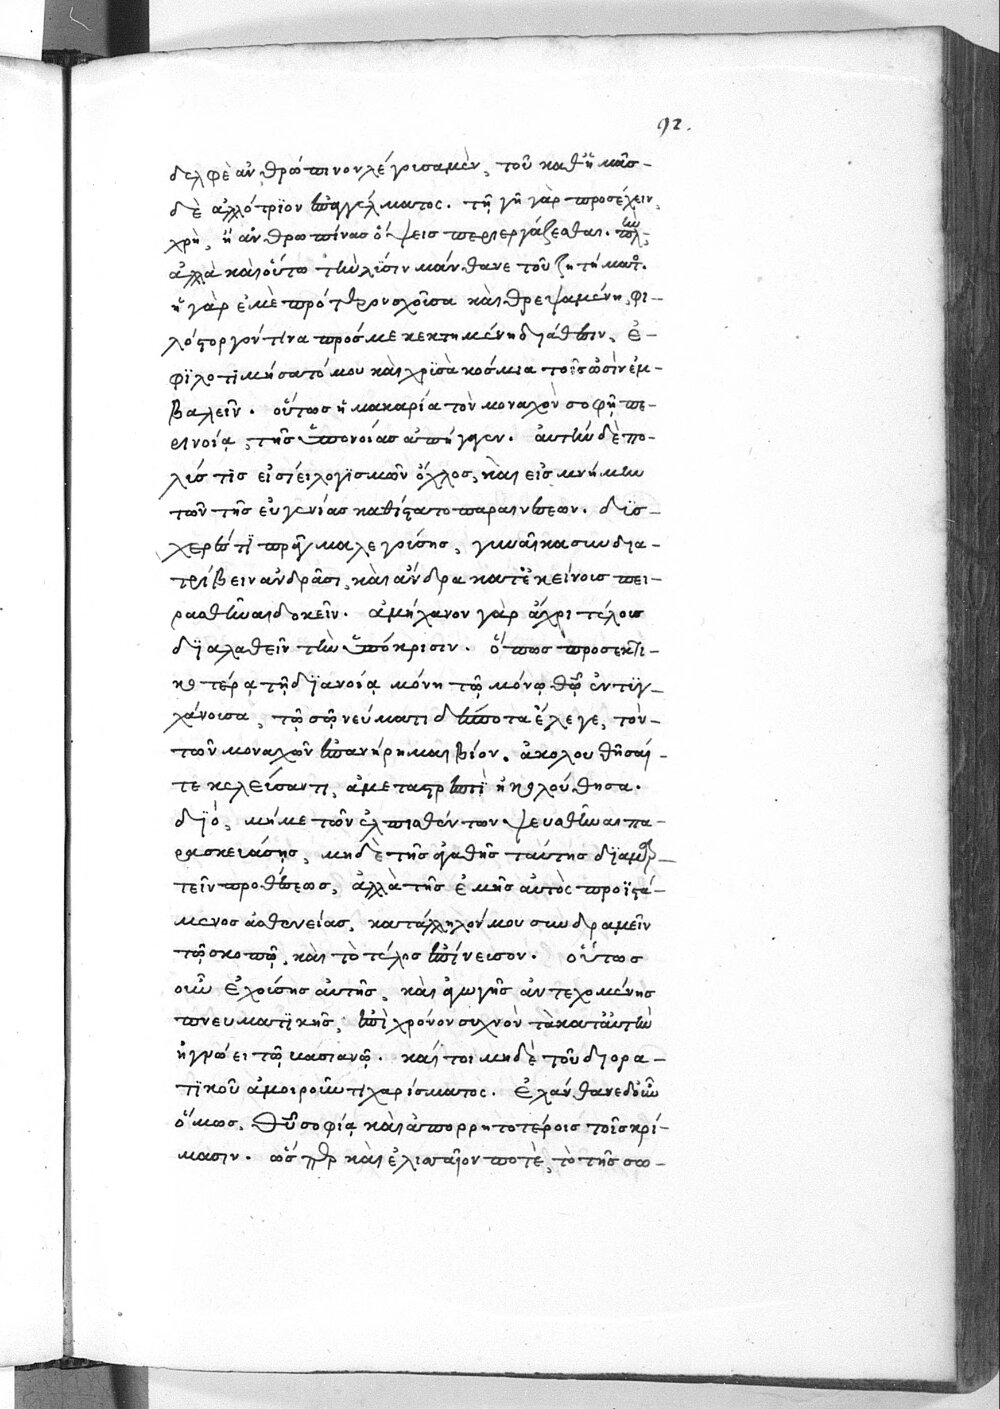 92.
δελφὲ ἀνθρώπινον λέγουσα μὲν, τοῦ καθ' ἡμᾶς
δὲ ἀλλότριον ἐπαγγέλματος. τῇ γῇ γὰρ προσέχειν
χρὴ, ἢ ἀνθρωπίνας ὄψεις περιεργάζεσθαι.
ἀλλὰ καὶ οὕτω τὴν λύσιν μάνθανε τοῦ ζητήματος.
ἡ γὰρ ἐμὲ πρότερον σχοῦσα καὶ θρεψαμένη, φι-
λόστοργόν τινα πρός με κεκτημένη διάθεσιν, ἐ-
φιλοτιμήσατό μου καὶ χρυσᾶ κόσμια τοῖς ὠσὶν ἐμ-
βαλεῖν. οὕτως ἡ μακαρία τὸν μοναχὸν σοφῇ πε-
ρινοίᾳ, τῆς ὑπονοίας ἀπήγαγεν. αὐτὴν δὲ πο-
λύς τις εἰστίει λογισμῶν ὄχλος, καὶ εἰς μνήμην
τῶν τῆς εὐγενίας καθίστατο παραινέσεων. δυσ-
χερές τι πρᾶγμα λεγούσης, γυναῖκα συνδια-
τρίβειν ἀνδράσι, καὶ ἄνδρα κατ' ἐκείνους πει-
ρασθῆναι δοκεῖν. ἀμήχανον γὰρ ἄχρι τέλους
διαλαθεῖν τὴν ὑπόκρισιν. ὅπως προσεκτι-
κωτέρᾳ τῇ διανοίᾳ μόνη τῷ μόνῳ θεῷ ἐντυγ-
χάνουσα, τῷ σῷ νεύματι δέσποτα ἔλεγε, τὸν
τῶν μοναχῶν ἐπανήρημαι βίον. ἀκολουθῆσαί
τε κελεύσαντι, ἀμεταστρεπτὶ ἠκολούθησα.
διὸ, μή με τῶν ἐλπισθέντων ψευσθῆναι πα-
ρασκευάσῃς, μηδὲ τῆς ἀγαθῆς ταύτης διαμαρ-
τεῖν προθέσεως, ἀλλὰ τῆς ἐμῆς αὐτὸς προϊστά-
μενος ἀσθενείας, κατάλληλόν μου συνδραμεῖν
τῷ σκοπῷ, καὶ τὸ τέλος ἐπίνευσον. οὕτως
οὖν ἐχούσης αὐτῆς, καὶ ἀγωγῆς ἀντεχομένης
πνευματικῆς, ἐπὶ χρόνον συχνὸν τὰ κατ' αὐτὴν
ἠγνόει τῷ κασιανῷ. καίτοι μηδὲ τοῦ διορα-
τικοῦ ἀμοιροῦντι χαρίσματος. ἐλάνθανε δ' οὖν
ὅμως, θεοῦ σοφίᾳ καὶ ἀπορρητοτέροις τοῖς κρί-
μασιν. ὥσπερ καὶ ἐλισσαῖον ποτὲ, τὸ τῆς σω-